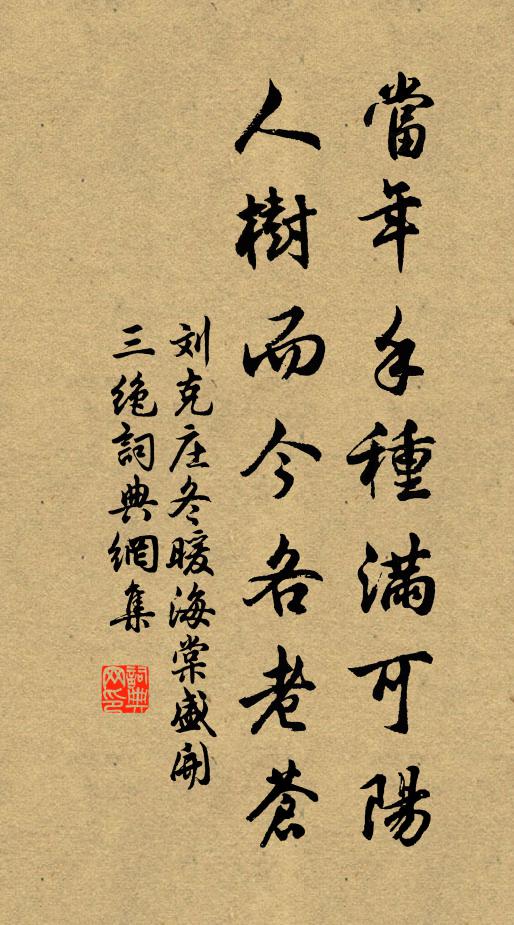 當年手種滿可陽
人樹而今各老蒼
刘克庄冬暖海棠盛開
三絶詞典網集
詞典网印